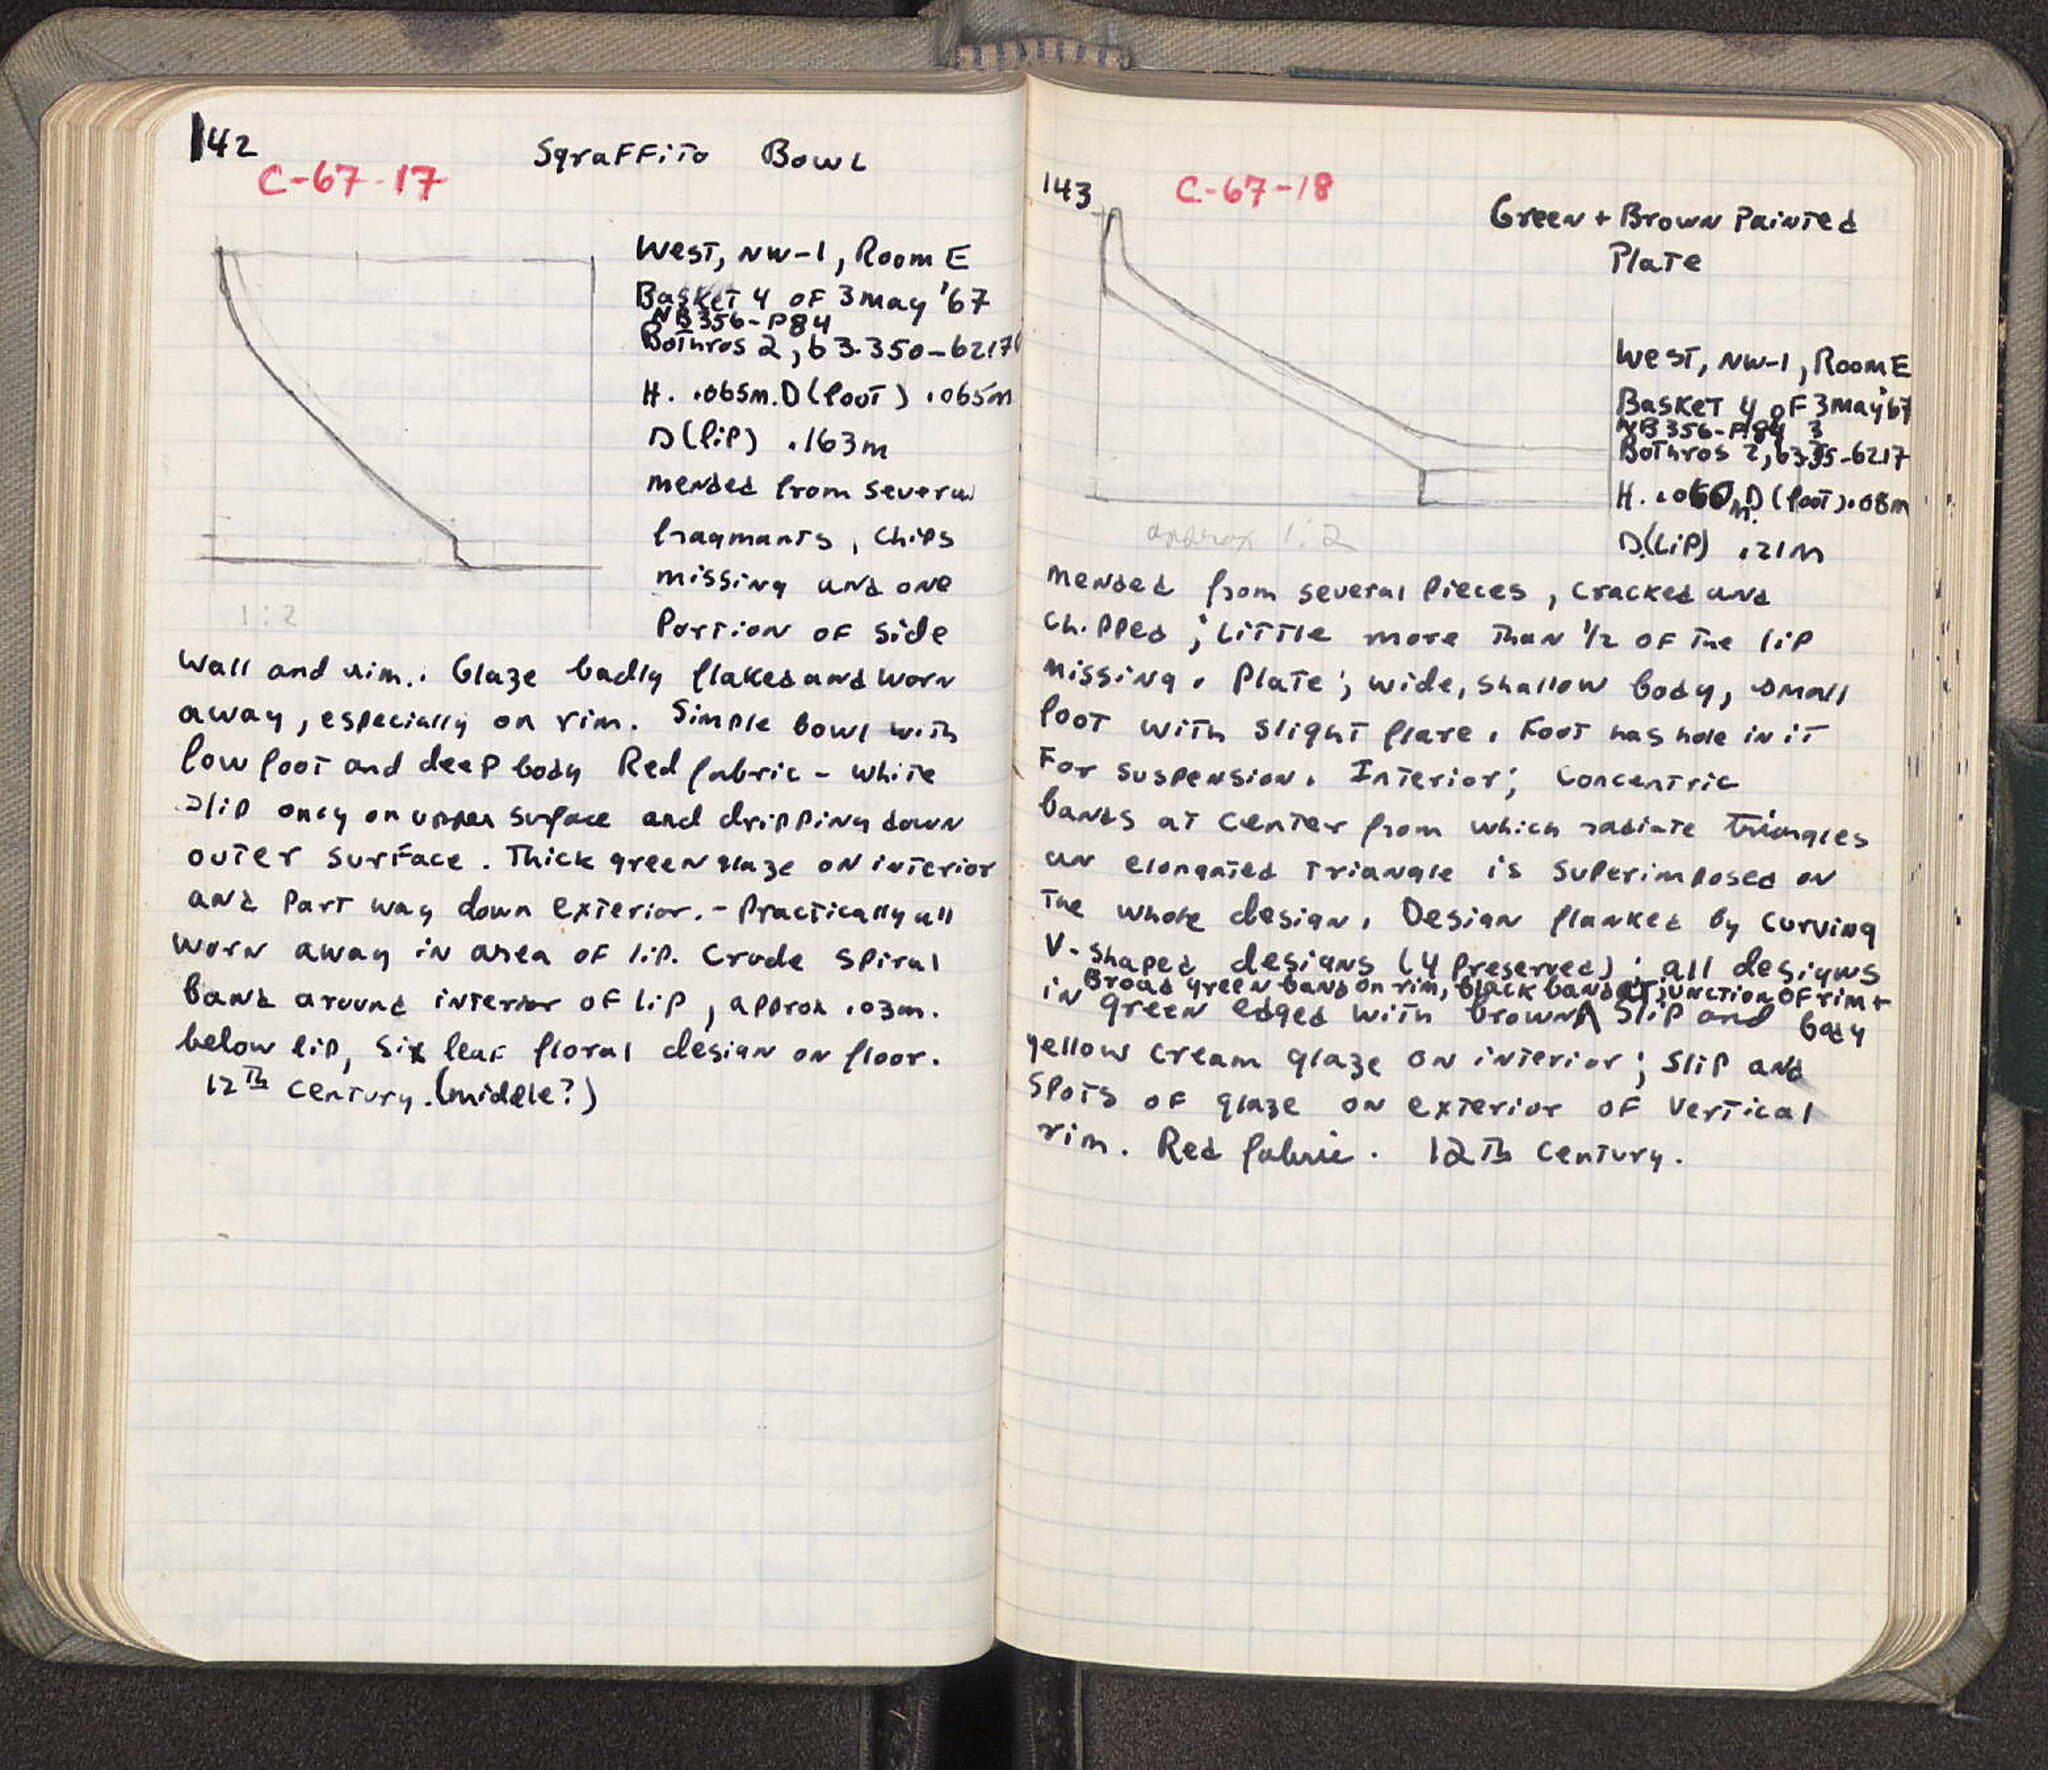 142
C-67-17
Sgraffito Bowl
West, NW-1, Room E
Basket 4 of 3 May '67
NB 356-P84
Bothros 2, 63.350-6217
H. .065m. D (foot) .065m
D (lip) .163m
mended from several
fragmants, chips
missing and one
Portion of side
1:2
wall and rim.. Glaze badly flaked and worn
away, especially on rim. Simple bowl with
low foot and deep body Red fabric - white
slip only on upper surface and dripping down
outer surface. Thick green glaze on interior
and part way down exterior. - Practically all
worn away in area of lip. Crude spiral
band around interior of lip, approx .03m.
below lip, six leaf floral design on floor.
12th Century. (middle?)
143
C-67-18
Green + Brown Painted
Plate
West, NW-1, Room E
Basket 4 of 3 May '67
NB 356-P84
Bothros 2, 63.35-6217
H. .060m. D (foot) .08m
D. (lip) .21m
approx 1:2
mended from several pieces, cracked and
chipped; little more than 1/2 of the lip
missing. Plate; wide, shallow body, small
foot with slight flare. Foot has hole in it
For suspension. Interior; Concentric
bands at center from which radiate triangles
an elongated triangle is superimposed on
the whole design. Design flanked by curving
V-shaped designs (4 preserved); all designs
Broad green band on rim, black band at junction of rim +
in green edged with brown ∧ slip and body
yellow cream glaze on interior; slip and
spots of glaze on exterior of vertical
rim. Red fabric. 12th Century.